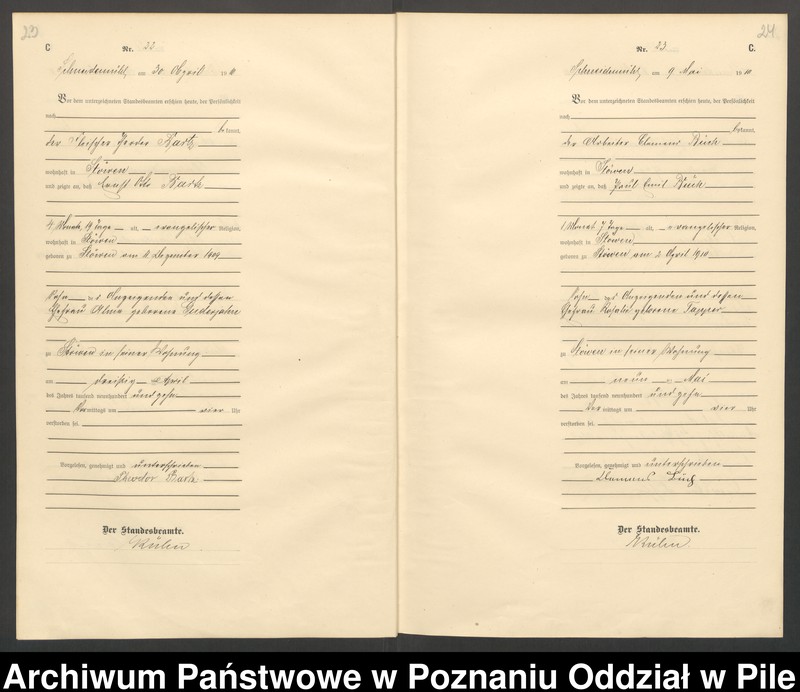 23
C
Nr. 22
Schneidemühl, am 30 April 1910
Vor dem unterzeichneten Standesbeamten erschien heute, der Persönlichkeit
nach
bekannt,
der Fleischer Theodor Bartz
wohnhaft in Stöwen
und zeigte an, daß Ernst Otto Bartz
4 Monate 19 Tage alt, evangelischer Religion,
wohnhaft in Stöwen
geboren zu Stöwen am 11 Dezember 1909
Sohn des Anzeigenden und dessen
Ehefrau Alma geborene
zu Stöwen in seiner Wohnung
am dreißig April
des Jahres tausend neunhundert und zehn
mittags um vier Uhr
verstorben sei.
Vorgelesen, genehmigt und unterschrieben
Theodor Bartz
Der Standesbeamte.
24
Nr. 23
C.
Schneidemühl, am 9 Mai 1910
Vor dem unterzeichneten Standesbeamten erschien heute, der Persönlichkeit
nach
bekannt,
der Arbeiter Clemens
wohnhaft in Stöwen
und zeigte an, daß Paul Emil
1 Monat 7 Tage alt, evangelischer Religion,
wohnhaft in Stöwen
geboren zu Stöwen am 2 April 1910
Sohn des Anzeigenden und dessen
Ehefrau Rosalie geborene
zu Stöwen in seiner Wohnung
am neun Mai
des Jahres tausend neunhundert und zehn
Vormittags um vier Uhr
verstorben sei.
Vorgelesen, genehmigt und unterschrieben
Clemens
Der Standesbeamte.
Archiwum Państwowe w Poznaniu Oddział w Pile